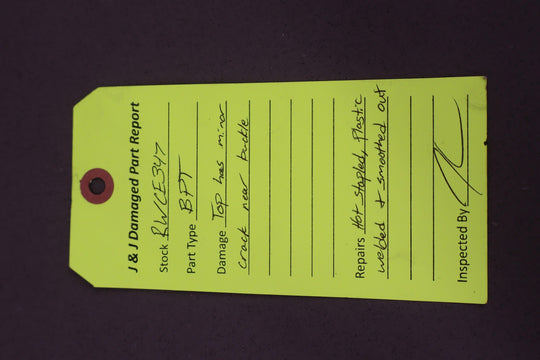 J & J Damaged Part Report
Stock RWCE347
Part Type BPT
Damage Top has minor
crack near buckle
Repairs Hot stapled, plastic
welded & smoothed out
Inspected By